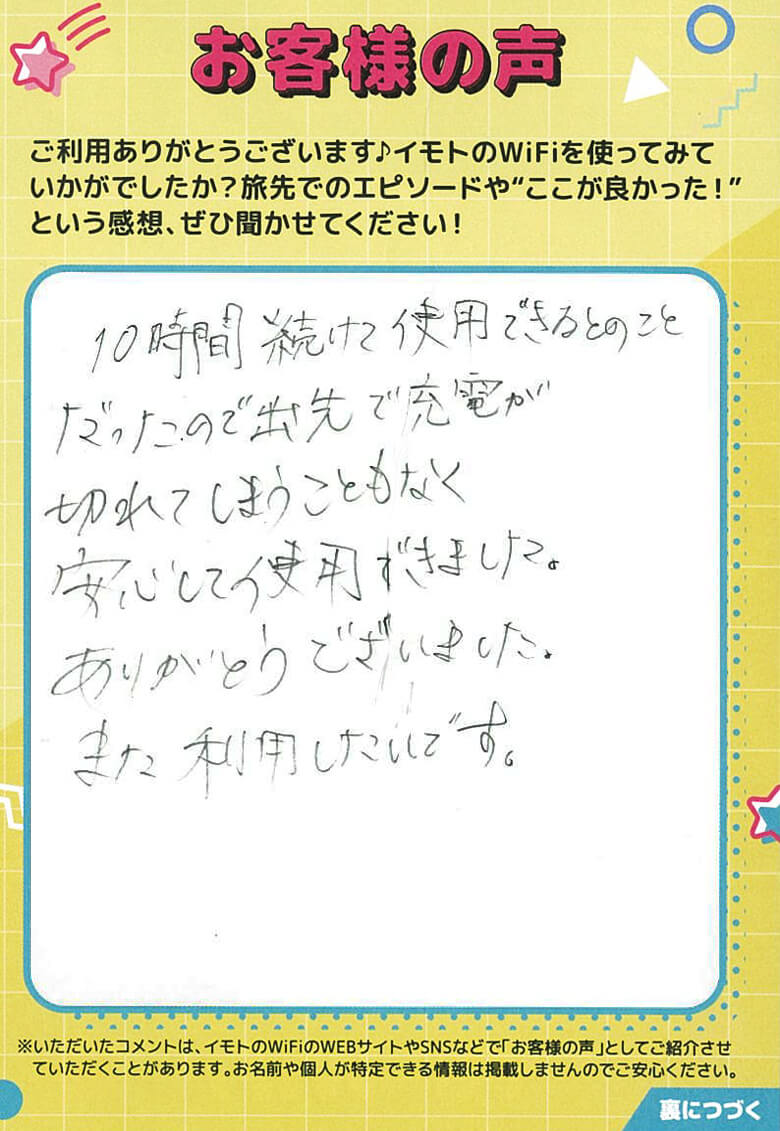 お客様の声
ご利用ありがとうございます♪イモトのWiFiを使ってみて
いかがでしたか？旅先でのエピソードや“ここが良かった！”
という感想、ぜひ聞かせてください！
10時間 続けて 使用できるとのこと
だったので出先で充電が
切れてしまうこともなく
安心して使用できました。
ありがとうございました。
また利用したいです。
※いただいたコメントは、イモトのWiFiのWEBサイトやSNSなどで「お客様の声」としてご紹介させ
ていただくことがあります。お名前や個人が特定できる情報は掲載しませんのでご安心ください。
裏につづく